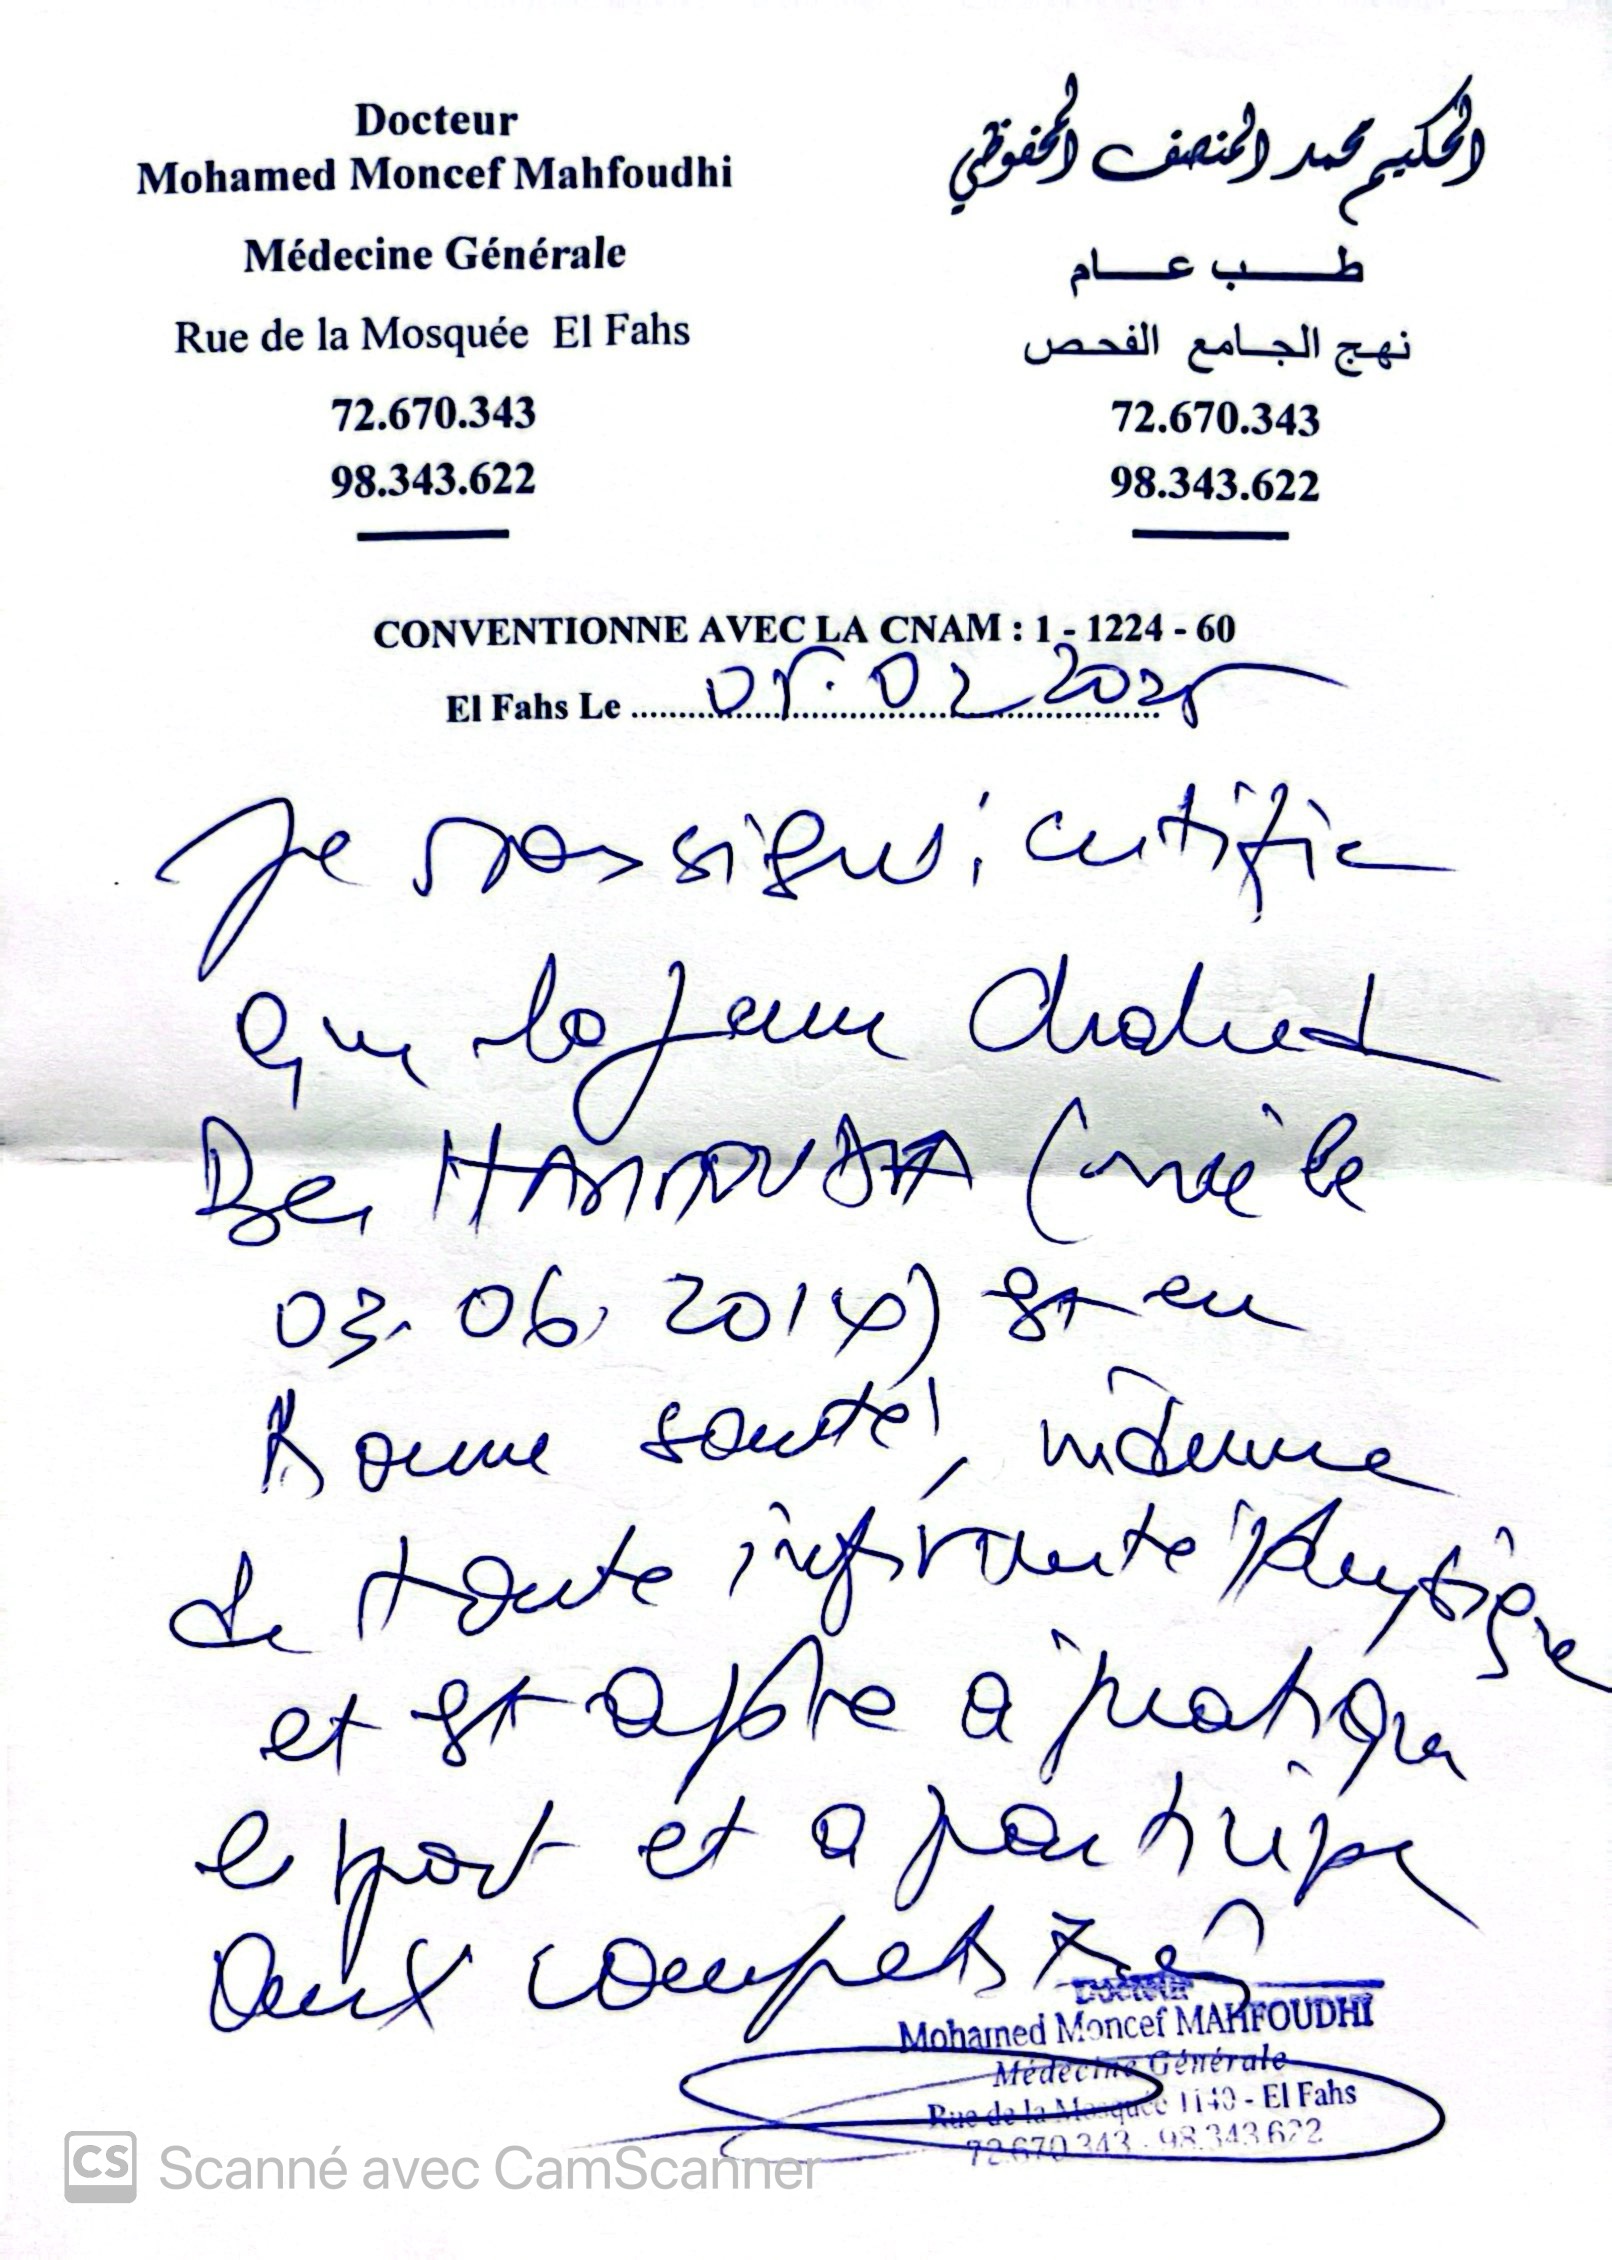 Docteur
Mohamed Moncef Mahfoudhi
Médecine Générale
Rue de la Mosquée El Fahs
72.670.343
98.343.622
الحكيم محمد المنصف المحفوظي
طب عام
نهج الجامع الفحص
72.670.343
98.343.622
CONVENTIONNE AVEC LA CNAM : 1 - 1224 - 60
El Fahs Le 05.02 2025
Je soussigné, certifie
que la jeune Chahed
Ben HAMMOUDA (née le
03.06.2014) est en
Bonne santé, indemne
de toute infirmité physique
et est apte à pratiquer
le sport et à participer
aux compétitions
Docteur
Mohamed Moncef MAHFOUDHI
Médecine Générale
Rue de la Mosquée 1140 - El Fahs
72.670.343 - 98.343.622
CS Scanné avec CamScanner